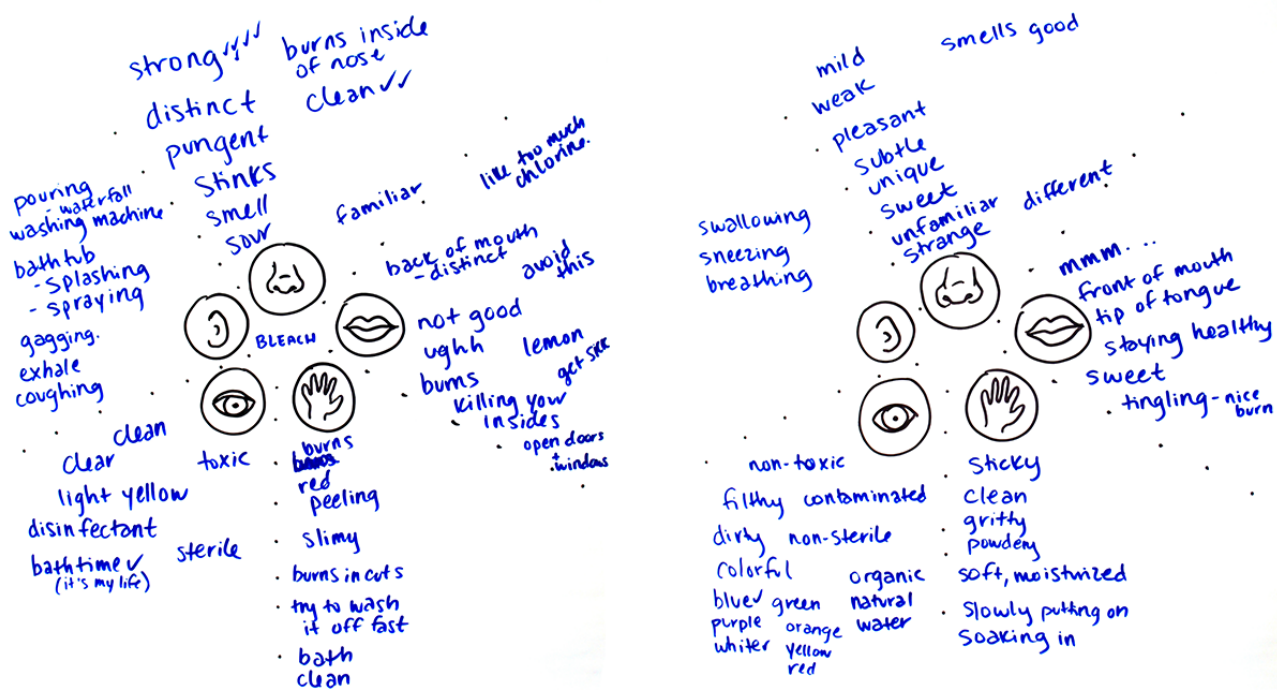 strong✓✓✓✓
burns inside
of nose
clean✓✓
distinct
pungent
stinks
smell
sour
familiar
like too much
chlorine.
pouring
- waterfall
washing machine
bathtub
- splashing
- spraying
gagging.
exhale
coughing
BLEACH
back of mouth
- distinct
avoid
this
not good
ughh
lemon
burns
get sick
killing your
insides
open doors
+ windows
clean
clear
toxic
light yellow
disinfectant
bathtime✓
(it's my life)
sterile
burns
red
peeling
slimy
burns in cuts
try to wash
it off fast
bath
clean
mild
smells good
weak
pleasant
subtle
unique
sweet
unfamiliar
different
strange
swallowing
sneezing
breathing
mmm...
front of mouth
tip of tongue
staying healthy
sweet
tingling - nice
burn
non-toxic
filthy contaminated
dirty non-sterile
colorful
blue✓ green
purple orange
white✓ yellow
red
organic
natural
water
sticky
clean
gritty
powdery
soft, moisturized
slowly putting on
soaking in